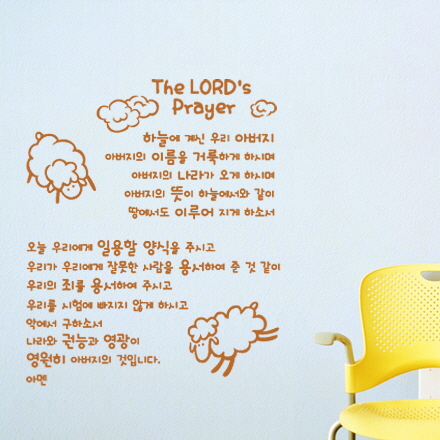 The LORD's
Prayer
하늘에 계신 우리 아버지
아버지의 이름을 거룩하게 하시며
아버지의 나라가 오게 하시며
아버지의 뜻이 하늘에서와 같이
땅에서도 이루어 지게 하소서
오늘 우리에게 일용할 양식을 주시고
우리가 우리에게 잘못한 사람을 용서하여 준 것 같이
우리의 죄를 용서하여 주시고
우리를 시험에 빠지지 않게 하시고
악에서 구하소서
나라와 권능과 영광이
영원히 아버지의 것입니다.
아멘